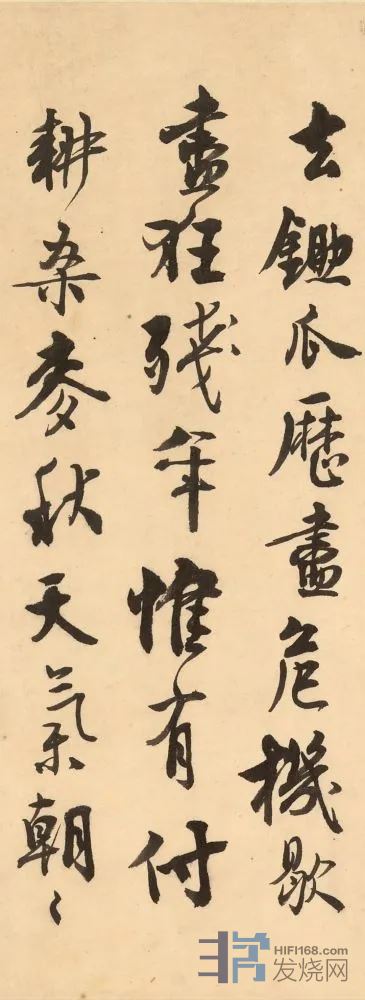 去鋤瓜歷盡危機歇
盡狂殘年惟有付
耕桑麥秋天氣朝〻
HIFI168.com
发烧网